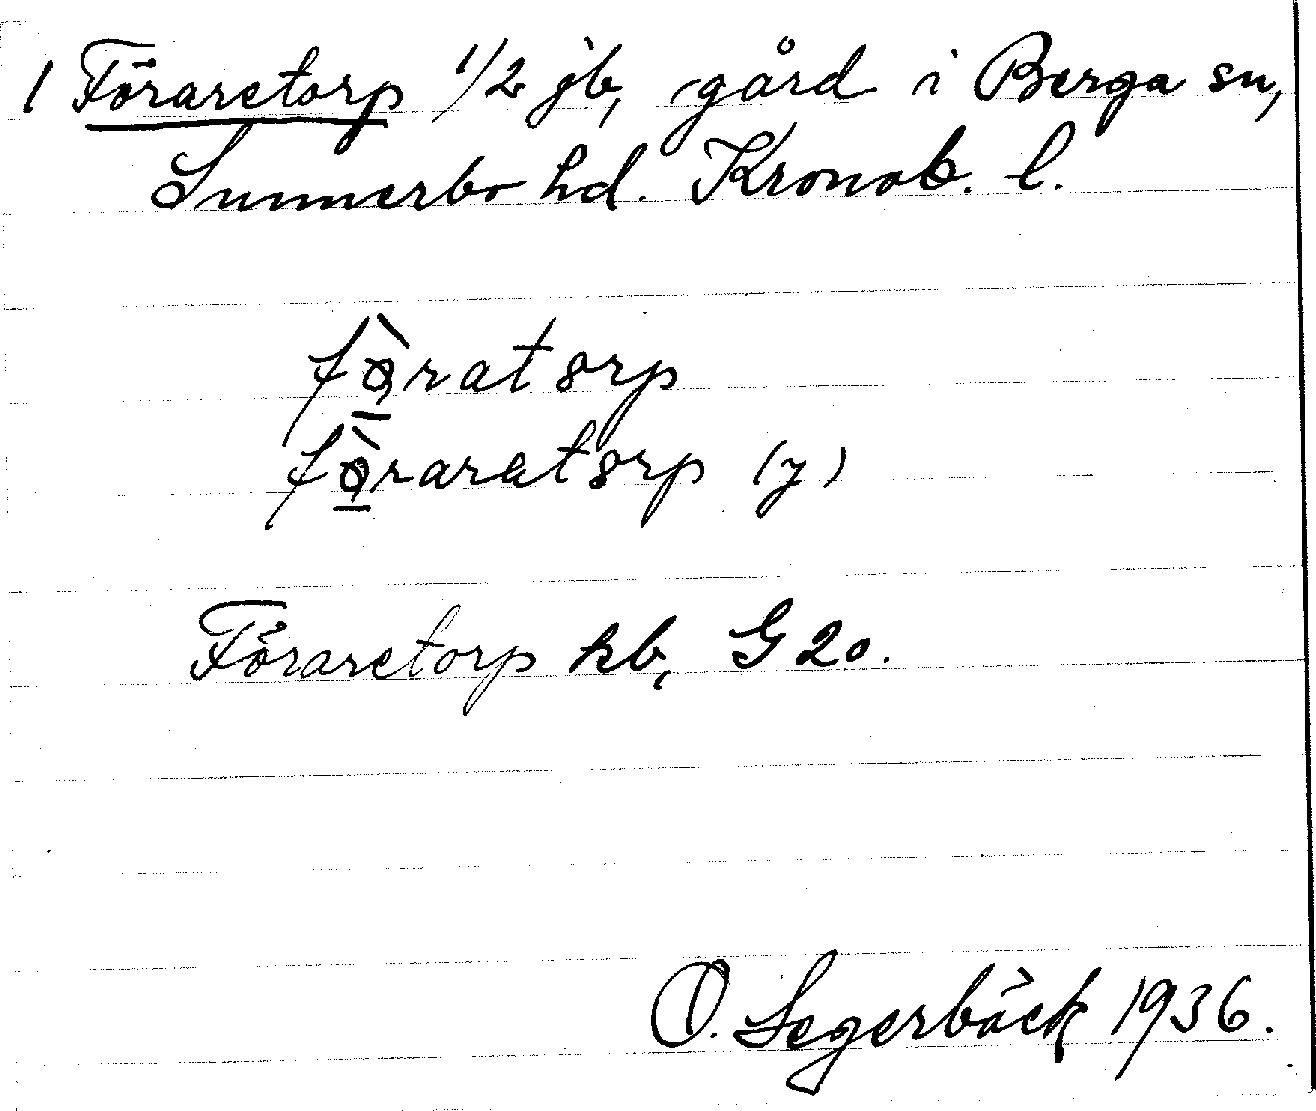 1 Föraretorp 1/2 jb, gård i Berga sn,
Sunnerbo hd. Kronob. l.
fǫ̀ratorp
fǫ̀raratorp (y)
Föraretorp kb, G 20.
O. Segerbäck 1936.